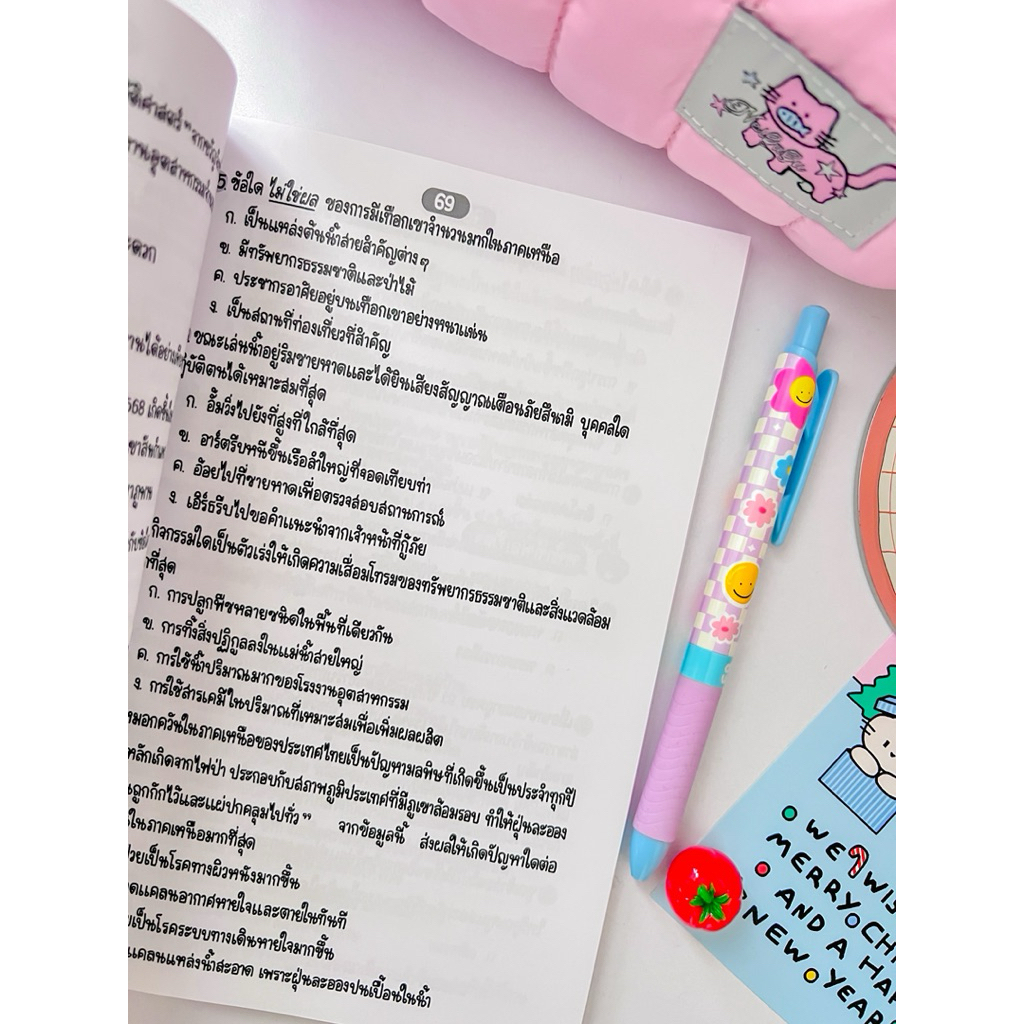 69
5. ข้อใด ไม่ใช่ผล ของการมีเทือกเขาจำนวนมากในภาคเหนือ
ก. เป็นแหล่งต้นน้ำสายสำคัญต่างๆ
ข. มีทรัพยากรธรรมชาติและป่าไม้
ค. ประชากรอาศัยอยู่บนเทือกเขาอย่างหนาแน่น
ง. เป็นสถานที่ท่องเที่ยวที่สำคัญ
ขณะเล่นน้ำอยู่ริมชายหาดและได้ยินเสียงสัญญาณเตือนภัยสึนามิ บุคคลใด
บัติตนได้เหมาะสมที่สุด
ก. อั้มวิ่งไปยังที่สูงที่ใกล้ที่สุด
ข. อาร์ตรีบหนีขึ้นเรือลำใหญ่ที่จอดเทียบท่า
ค. อ้อยไปที่ชายหาดเพื่อตรวจสอบสถานการณ์
ง. เอิร์ธรีบไปขอคำแนะนำจากเจ้าหน้าที่กู้ภัย
กิจกรรมใดเป็นตัวเร่งให้เกิดความเสื่อมโทรมของทรัพยากรธรรมชาติและสิ่งแวดล้อม
ที่สุด
ก. การปลูกพืชหลายชนิดในพื้นที่เดียวกัน
ข. การทิ้งสิ่งปฏิกูลลงในแม่น้ำสายใหญ่
ค. การใช้น้ำปริมาณมากของโรงงานอุตสาหกรรม
ง. การใช้สารเคมีในปริมาณที่เหมาะสมเพื่อเพิ่มผลผลิต
หมอกควันในภาคเหนือของประเทศไทยเป็นปัญหามลพิษที่เกิดขึ้นเป็นประจำทุกปี
หลักเกิดจากไฟป่า ประกอบกับสภาพภูมิประเทศที่มีภูเขาล้อมรอบ ทำให้ฝุ่นละออง
ถูกกักไว้และแผ่ปกคลุมไปทั่ว" จากข้อมูลนี้ ส่งผลให้เกิดปัญหาใดต่อ
ในภาคเหนือมากที่สุด
ป่วยเป็นโรคทางผิวหนังมากขึ้น
ดแคลนอากาศหายใจและตายในทันที
เป็นโรคระบบทางเดินหายใจมากขึ้น
แคลนแหล่งน้ำสะอาด เพราะฝุ่นละอองปนเปื้อนในน้ำ
WE WIS
MERRY CH
AND A HA
NEW YEAR